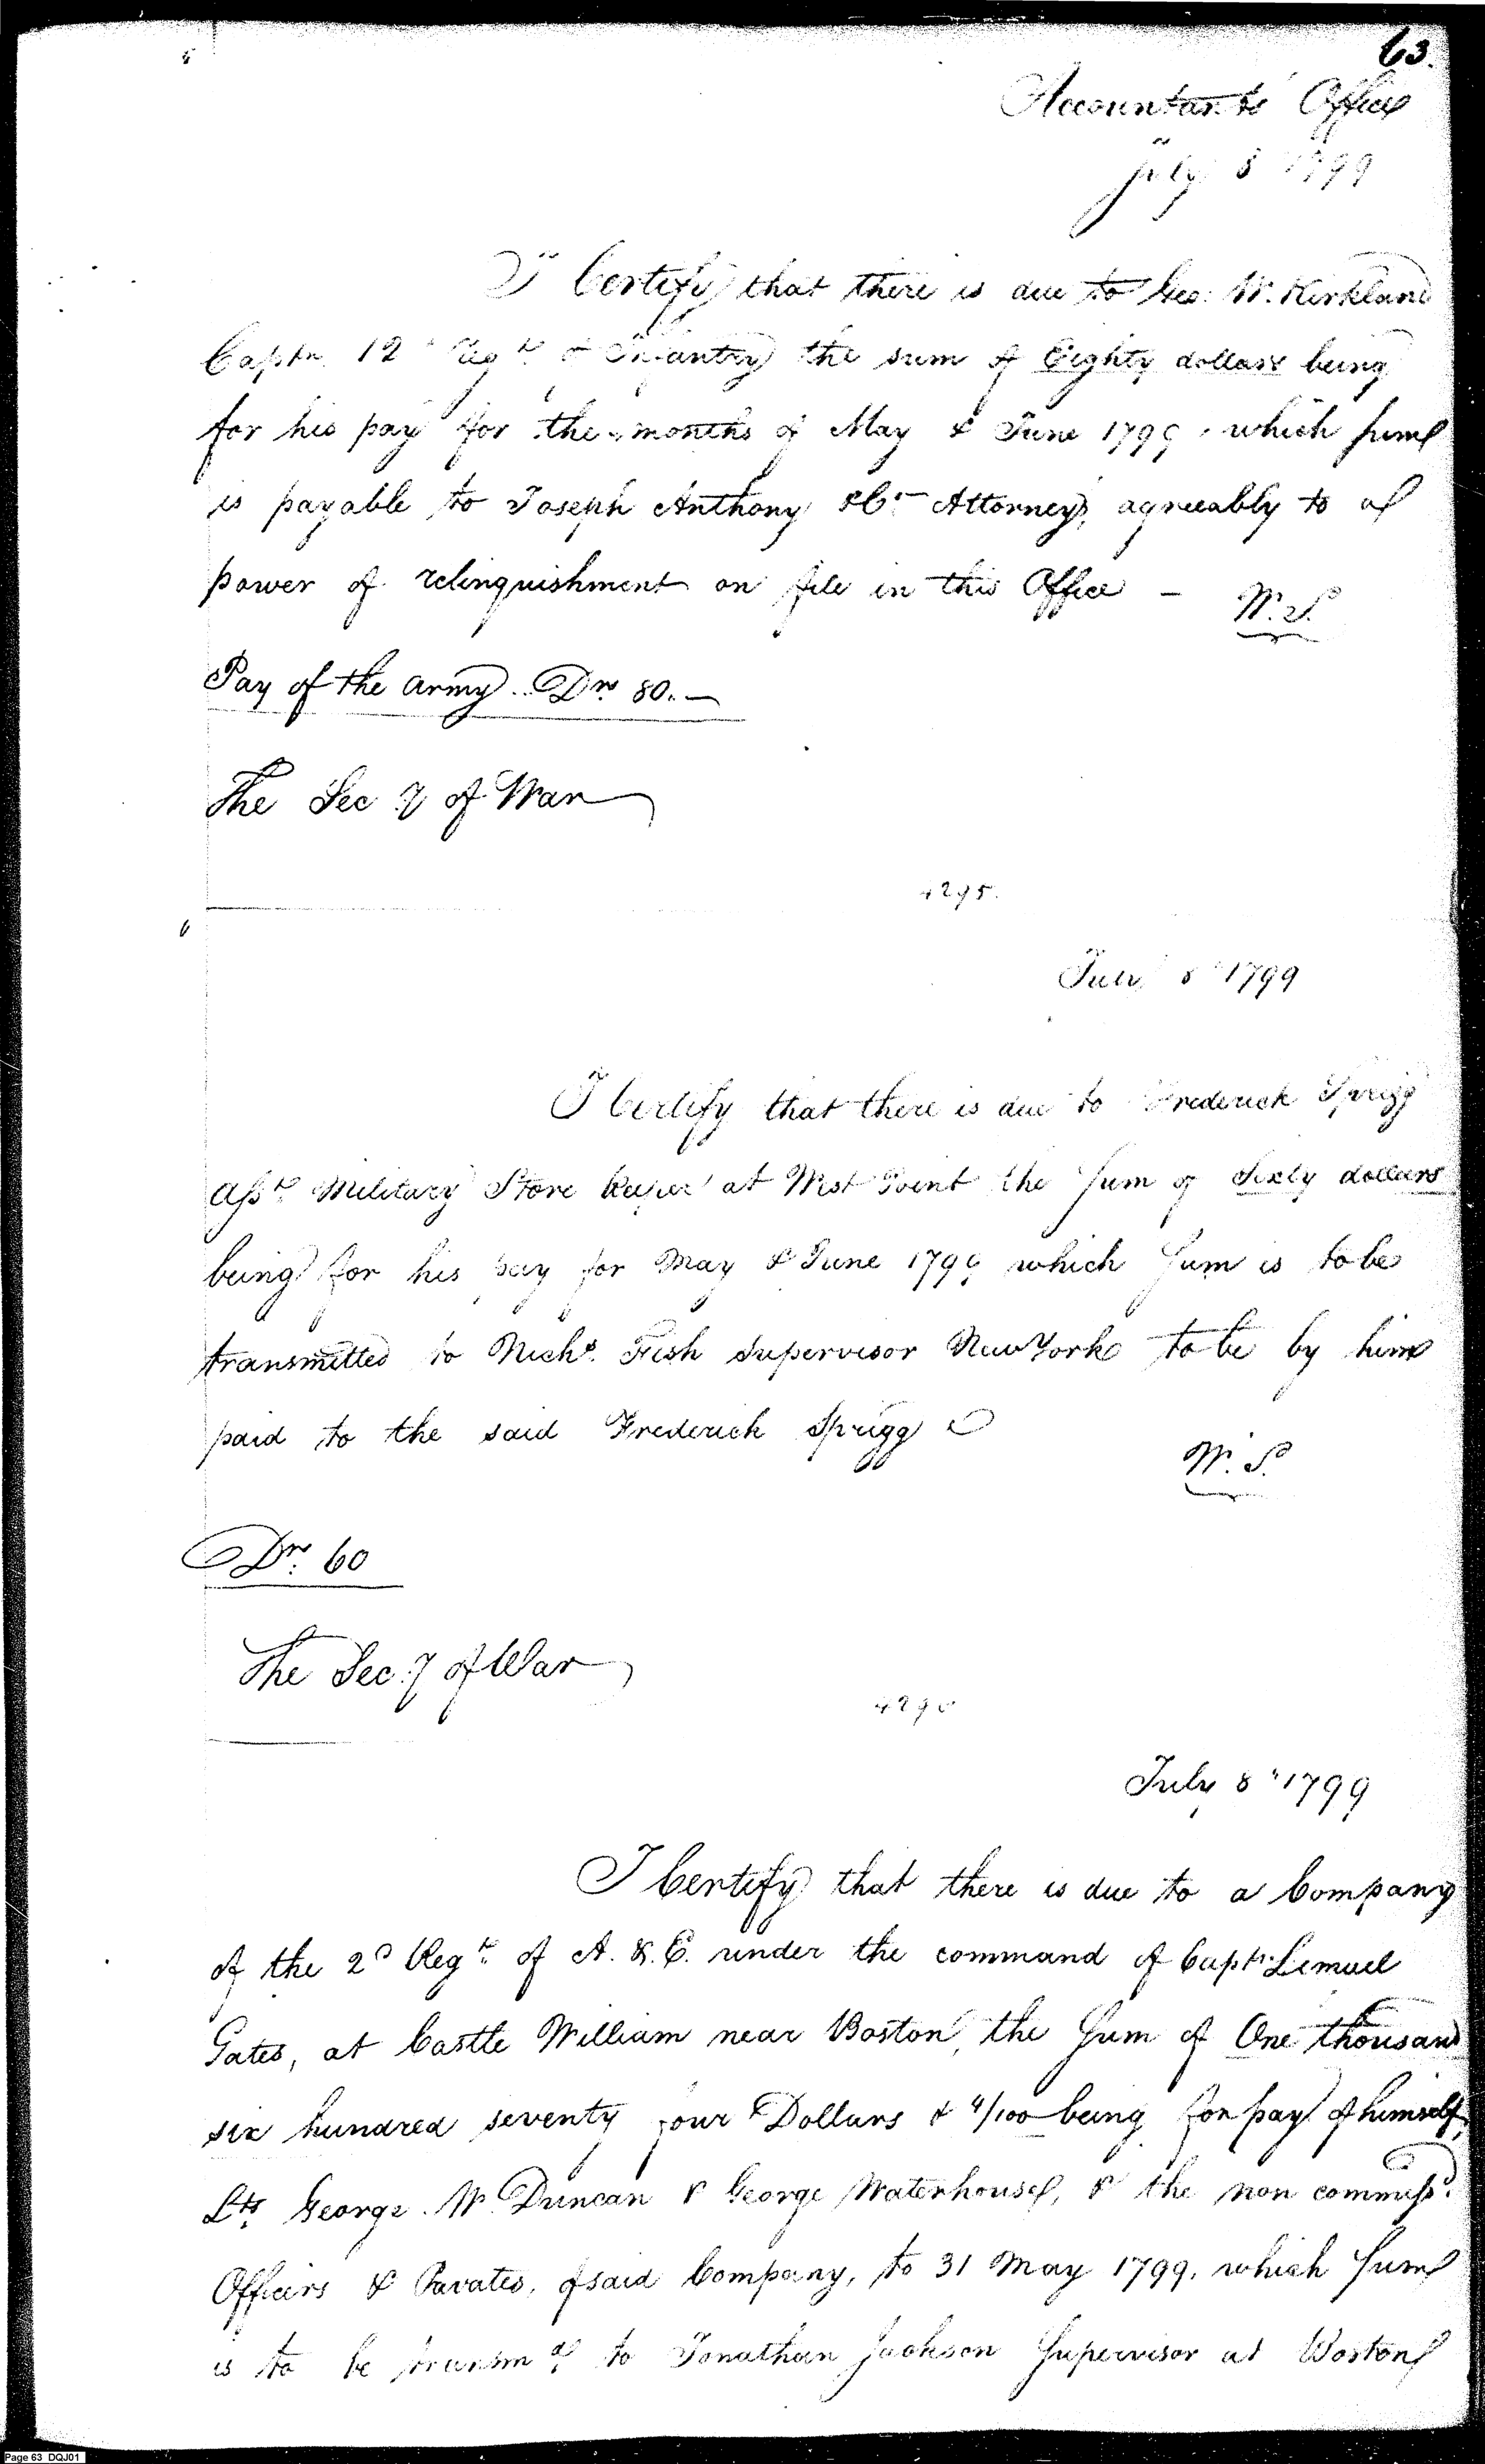 63.
Accountants Office
July 8 1799
I Certify that there is due to Geo: W. Kirkland
Captn. 12 Regt of Infantry the sum of Eighty dollars being
for his pay for the months of May & June 1799, which sum
is payable to Joseph Anthony & Co Attorney, agreeably to a
power of relinquishment on file in this Office — W. S.
Pay of the army .. Drs 80. —
The Secy of War
4295.
July 8 1799
I Certify that there is due to Frederick Sprigg
Asst Military Store Keeper at West Point the sum of Sixty dollars
being for his pay for May & June 1799 which sum is to be
transmitted to Nichs. Fish Supervisor New York to be by him
paid to the said Frederick Sprigg
W. S.
Drs. 60
The Secy of War
July 8 1799
I Certify that there is due to a Company
of the 2d Regt. of A. & E. under the command of Captn. Lemuel
Gates, at Castle William near Boston, the Sum of One thousand
six hundred seventy four Dollars & 4/100 being for pay of himself,
Lts. George W. Duncan & George Waterhouse, & the non commissd.
Officers & Privates, of said Company, to 31 May 1799. which sum
is to be transmd. to Jonathan Jackson Supervisor at Boston
Page 63 DQJ01